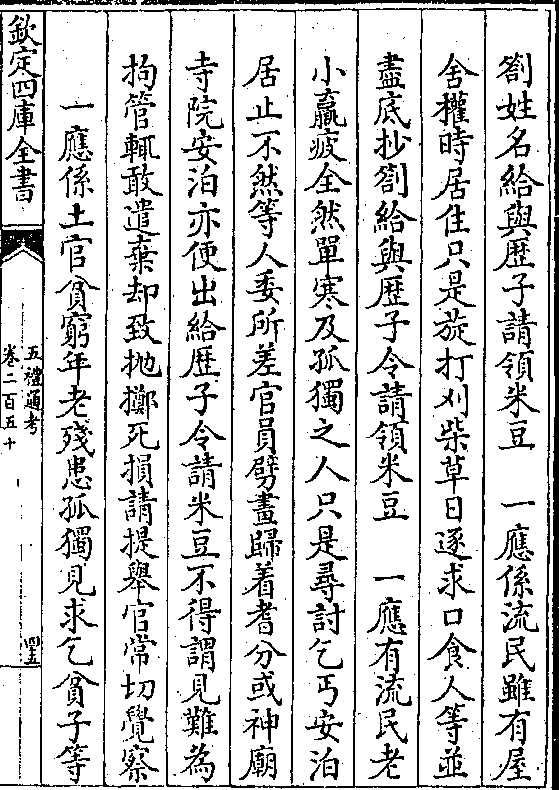 劄姓名給與歴子請領米豆　一應係流民雖有屋
舍權時居住只是旋打刈柴草日逐求口食人等並
盡底抄劄給與歴子令請領米豆　一應有流民老
小羸疲全然單寒及孤獨之人只是尋討乞丐安泊
居止不然等人委所差官員劈畫歸着耆分或神廟
寺院安泊亦便出給歴子令請米豆不得謂見難為
拘管輒敢遣棄却致抛擲死損請提舉官常切覺察
一應係土官貧窮年老殘患孤獨見求乞貧子等
欽定四庫全書
五禮通考
卷二百五十
四五